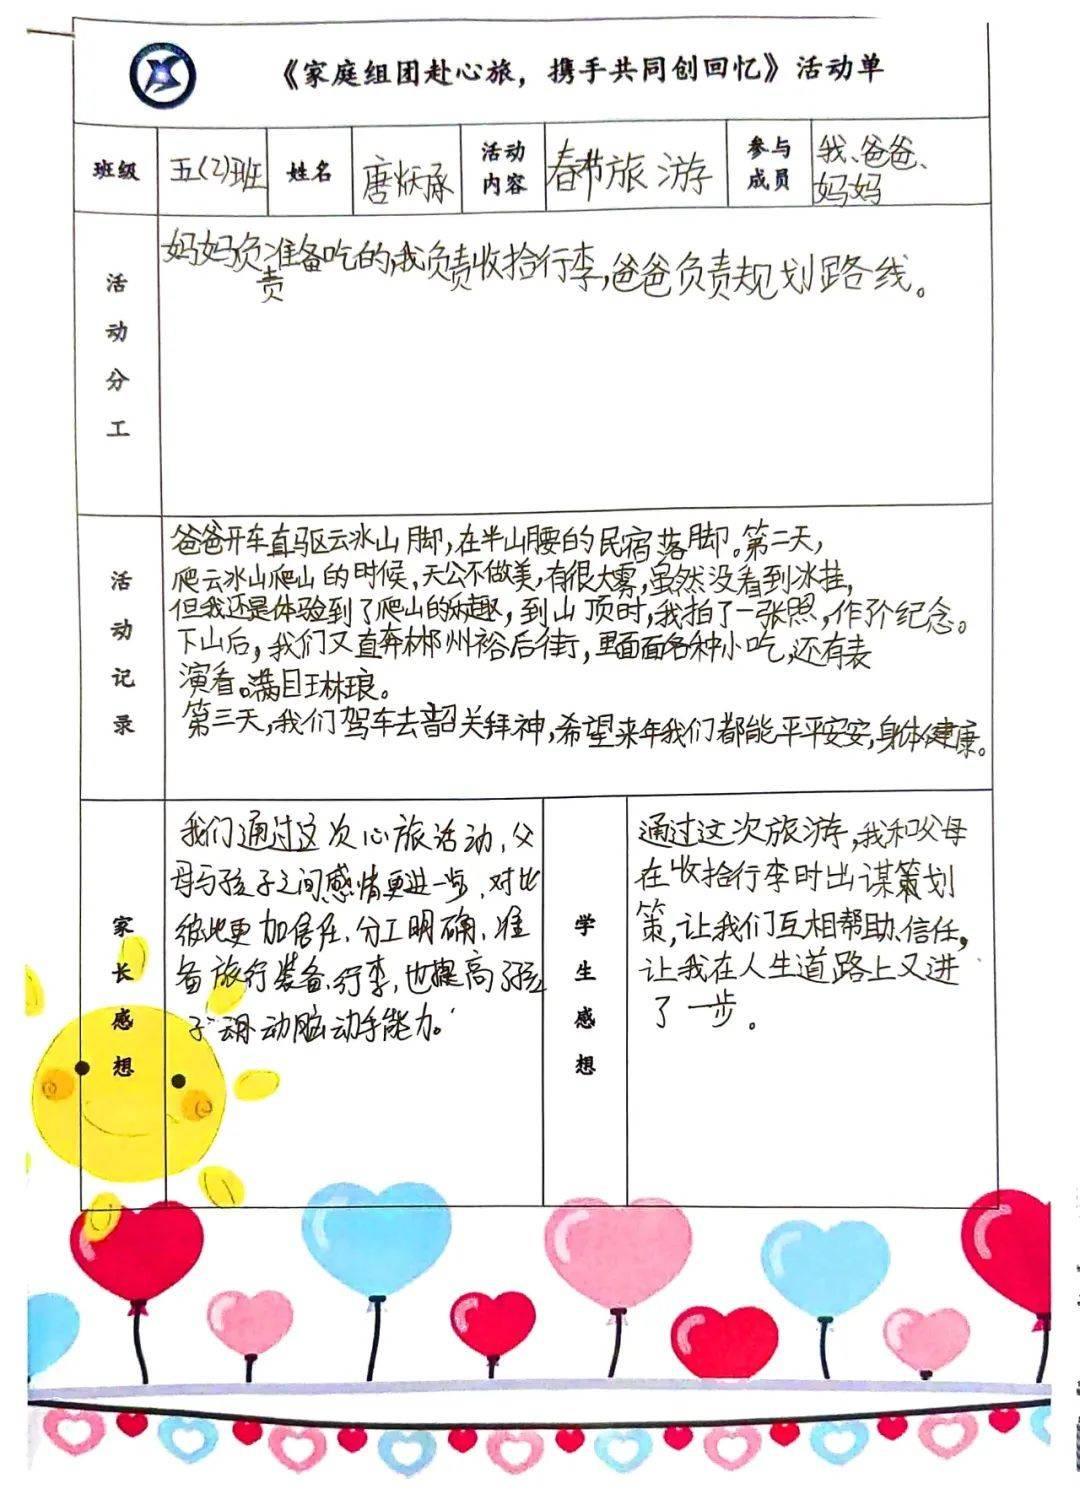 《家庭组团赴心旅，携手共同创回忆》活动单
班级 五(2)班 姓名 唐炳承 活动内容 春节旅游 参与成员 我、爸爸、妈妈
活动分工
妈妈负责准备吃的,我负责收拾行李,爸爸负责规划路线。
活动记录
爸爸开车直驱云冰山脚,在半山腰的民宿落脚。第二天,
爬云冰山爬山的时候,天公不做美,有很大雾,虽然没看到冰挂,
但我还是体验到了爬山的乐趣,到山顶时,我拍了一张照,作为纪念。
下山后,我们又直奔郴州裕后街,里面面各种小吃,还有表
演看。满目琳琅。
第三天,我们驾车去韶关拜神,希望来年我们都能平平安安,身体健康。
家长感想
我们通过这次心旅活动,父
母与孩子之间感情更进一步,对比
彼此更加信任、分工明确、准
备旅行装备、行李,也提高了孩
子动脑动手能力。
学生感想
通过这次旅游,我和父母
在收拾行李时出谋策划
策,让我们互相帮助、信任,
让我在人生道路上又进
了一步。